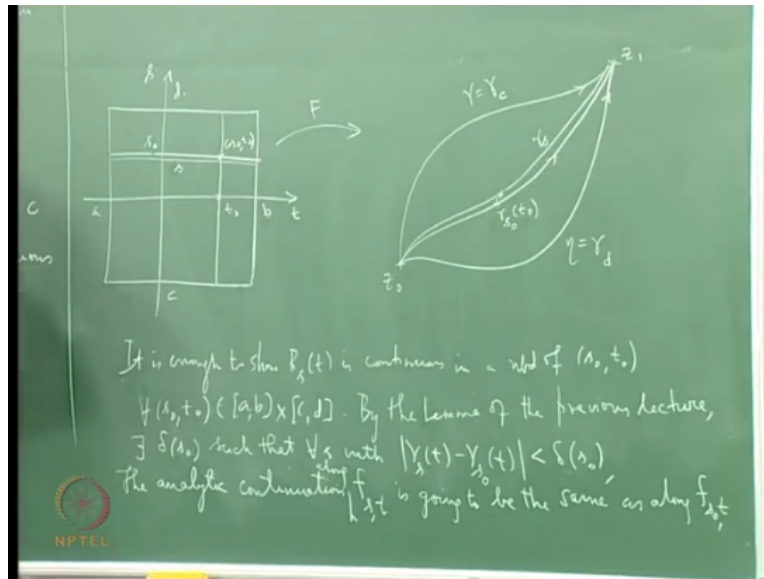 c
s
d
s₀
(s₀,t₀)
s
a
t₀
b
t
c
F
z₁
γ=γ_c
γ_{s₀}(t₀)
η=γ_d
z₀
It is enough to show R_s(t) is continuous in a nbd of (s₀,t₀)
∀(s₀,t₀)∈[a,b]×[c,d]. By the Lemma of the previous lecture,
∃ δ(s₀) such that ∀s with |γ_s(t)-γ_{s₀}(t)|<δ(s₀)
The analytic continuation along f_{s,t} is going to be the same as along f_{s₀,t},
NPTEL